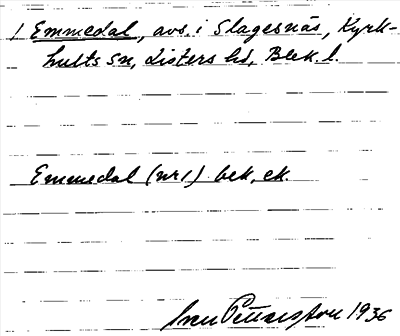 1 Emmedal, avs. i Slagesnäs, Kyrk-
hults sn, Listers hd, Blek. l.
Emmedal (nr 1) bek. ek.
1936